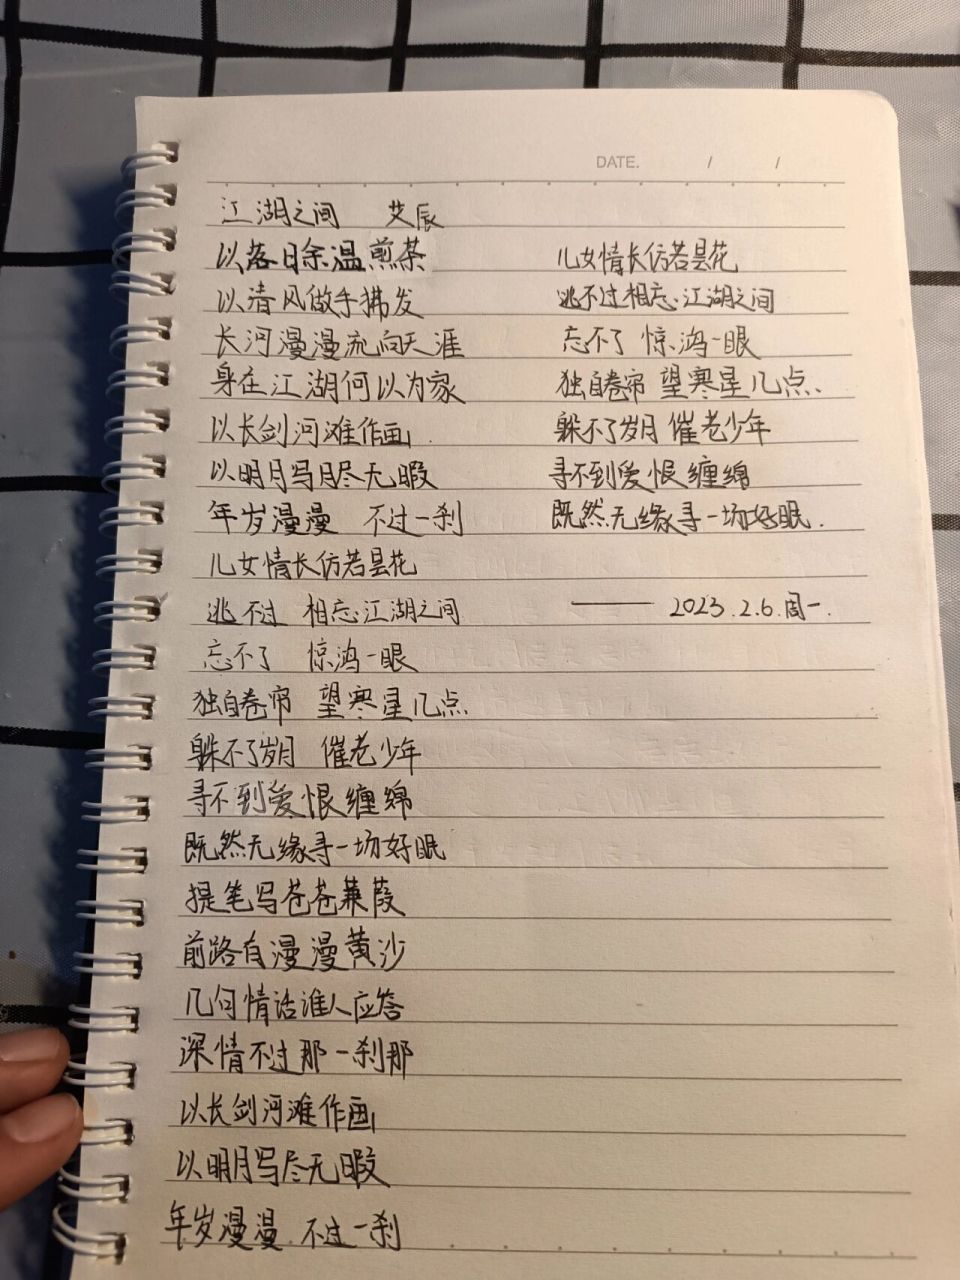 DATE. / /
江湖之间 艾辰
以落日余温煎茶
以清风做手拂发
长河漫漫流向天涯
身在江湖何以为家
以长剑河滩作画
以明月写尽无暇
年岁漫漫 不过一刹
儿女情长仿若昙花
逃不过 相忘江湖之间
忘不了 惊鸿一眼
独自卷帘 望寒星几点
躲不了岁月 催老少年
寻不到爱恨缠绵
既然无缘寻一场好眠
提笔写苍苍蒹葭
前路自漫漫黄沙
几句情话谁人应答
深情不过那一刹那
以长剑河滩作画
以明月写尽无暇
年岁漫漫 不过一刹
儿女情长仿若昙花
逃不过相忘江湖之间
忘不了 惊鸿一眼
独自卷帘 望寒星几点.
躲不了岁月 催老少年
寻不到爱恨缠绵
既然无缘寻一场好眠.
—— 2023.2.6.周一.